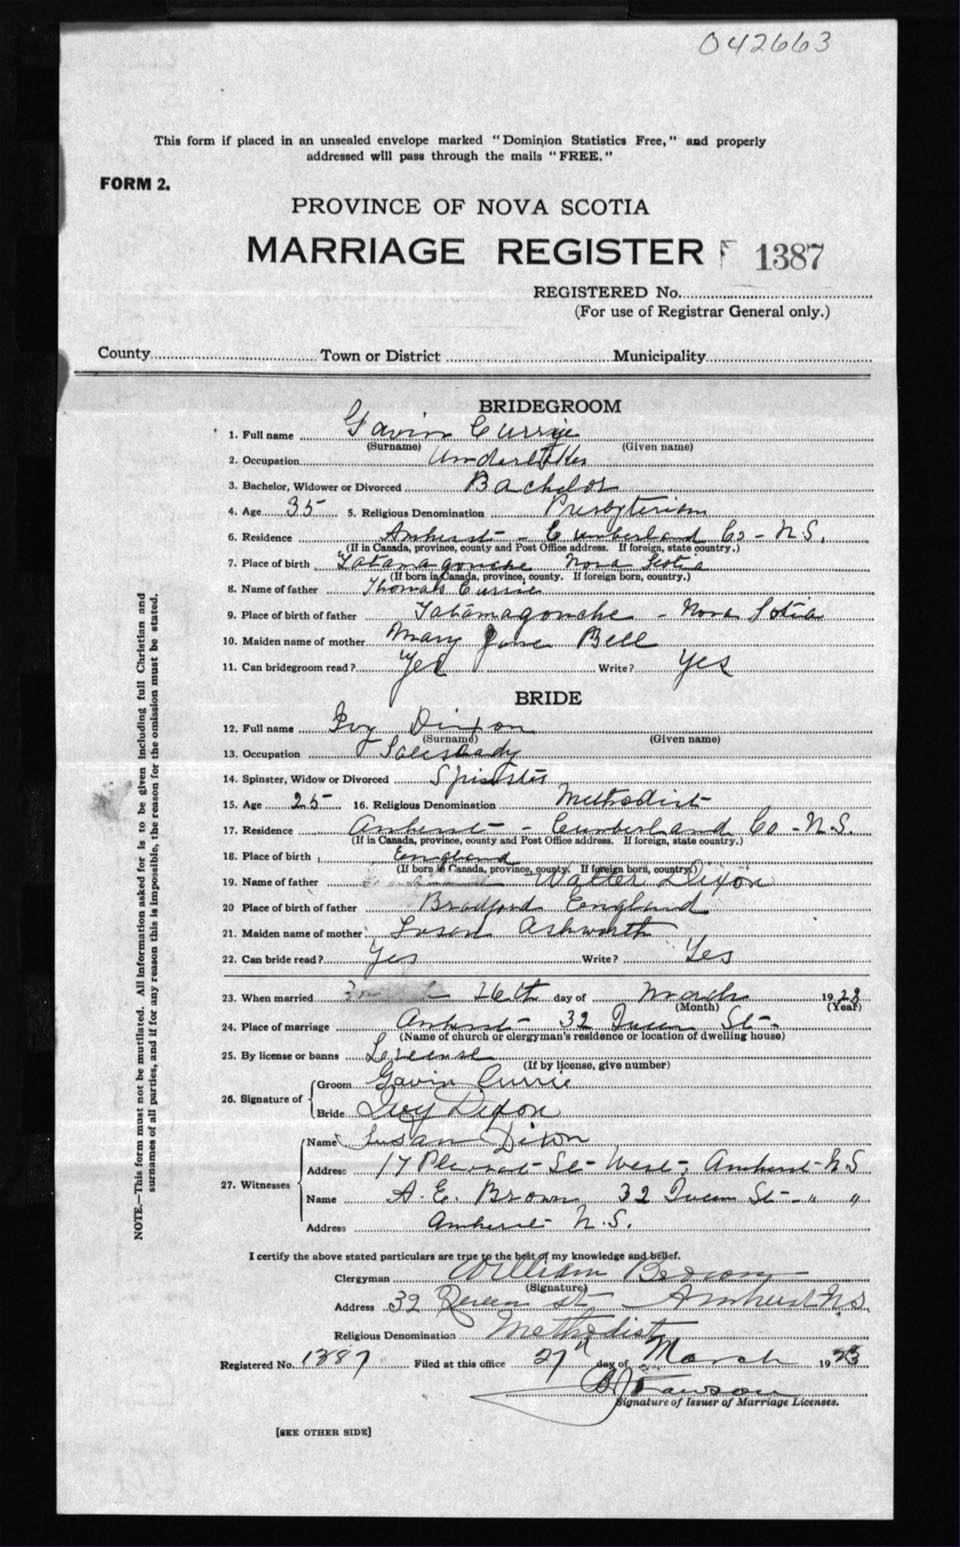 042663
This form if placed in an unsealed envelope marked "Dominion Statistics Free," and properly
addressed will pass through the mails "FREE."
FORM 2.
PROVINCE OF NOVA SCOTIA
MARRIAGE REGISTER F 1387
REGISTERED No.
(For use of Registrar General only.)
County Town or District Municipality
BRIDEGROOM
1. Full name Gavin Currie
(Surname) (Given name)
2. Occupation Undertaker
3. Bachelor, Widower or Divorced Bachelor
4. Age 35 5. Religious Denomination Presbyterian
6. Residence Amherst - Cumberland Co - N.S.
(If in Canada, province, county and Post Office address. If foreign, state country.)
7. Place of birth Tatamagouche Nova Scotia
(If born in Canada, province, county. If foreign born, country.)
8. Name of father Thomas Currie
9. Place of birth of father Tatamagouche - Nova Sotia
10. Maiden name of mother Mary Jane Bell
11. Can bridegroom read? Yes Write? Yes
BRIDE
12. Full name Ivy Dixon
(Surname) (Given name)
13. Occupation Saleslady
14. Spinster, Widow or Divorced Spinster
15. Age 25 16. Religious Denomination Methodist
17. Residence Amherst - Cumberland Co - N.S.
(If in Canada, province, county and Post Office address. If foreign, state country.)
18. Place of birth England
(If born in Canada, province, county. If foreign born, country.)
19. Name of father Walter Dixon
20 Place of birth of father Bradford England
21. Maiden name of mother Susan Ashworth
22. Can bride read? Yes Write? Yes
23. When married 26th day of March 1923
(Month) (Year)
24. Place of marriage Amherst - 32 Queen St -
(Name of church or clergyman's residence or location of dwelling house)
25. By license or banns License
(If by license, give number)
26. Signature of
Groom Gavin Currie
Bride Ivy Dixon
27. Witnesses
Name Susan Dixon
Address 17 Pleasant St - West -, Amherst N.S
Name A. E. Brown 32 Queen St - " "
Address Amherst N.S.
I certify the above stated particulars are true to the best of my knowledge and belief.
Clergyman William Brown
(Signature)
Address 32 Queen St Amherst N.S.
Religious Denomination Methodist
Registered No. 1387 Filed at this office 27th day of March 1923
Signature of Issuer of Marriage Licenses.
[SEE OTHER SIDE]
NOTE.—This form must not be mutilated. All information asked for is to be given including full Christian and
surnames of all parties, and if for any reason this is impossible, the reason for the omission must be stated.